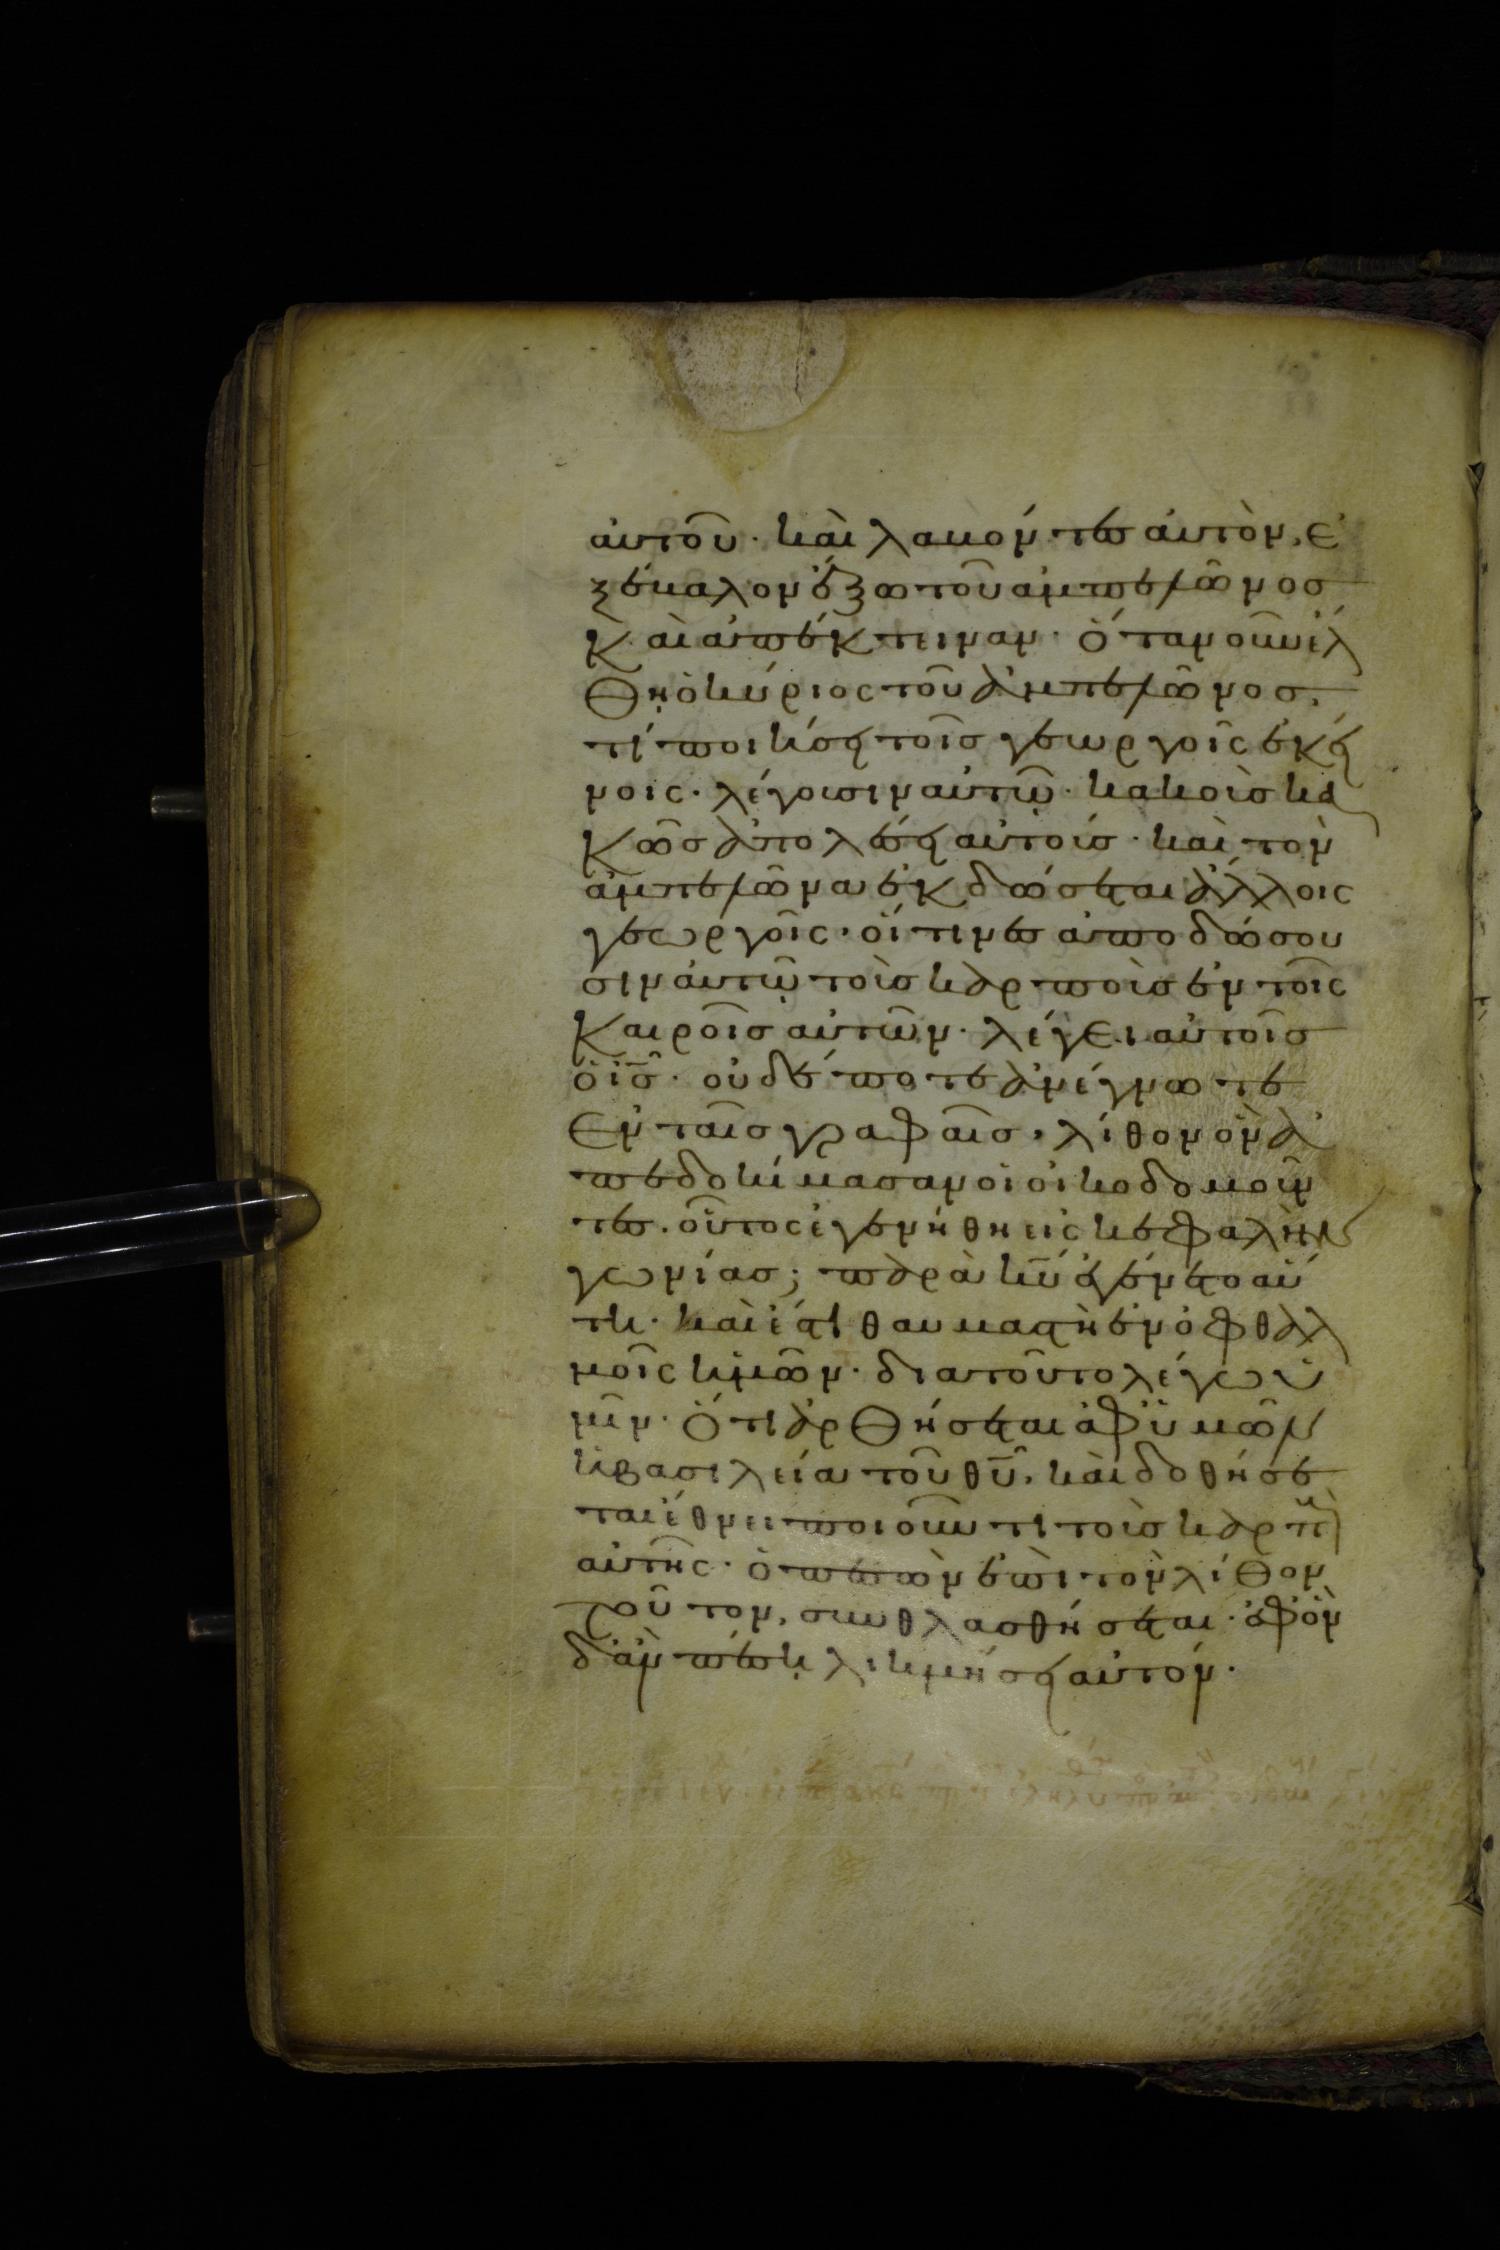 αὐτοῦ· καὶ λαβόντες αὐτὸν, ἐ
ξέβαλον ἔξω τοῦ ἀμπελῶνος
καὶ ἀπέκτειναν· ὅταν οὖν ἔλ
θη ὁ κύριος τοῦ ἀμπελῶνος,
τί ποιήσει τοῖς γεωργοῖς ἐκεί
νοις· λέγουσιν αὐτῶ· κακοὺς κα
κῶς ἀπολέσει αὐτούς· καὶ τὸν
ἀμπελῶνα ἐκδώσεται ἄλλοις
γεωργοῖς· οἵτινες ἀποδώσου
σιν αὐτῶ τοὺς καρποὺς ἐν τοῖς
καιροῖς αὐτῶν· λέγει αὐτοῖς
ὁ ἰς̅· οὐδέποτε ἀνέγνωτε
ἐν ταῖς γραφαῖς, λίθον ὃν ἀ
πεδοκίμασαν οἱ οἰκοδομοῦν
τες. οὗτος ἐγενήθη εἰς κεφαλὴν
γωνίας; παρὰ κυ̅ ἐγένετο αὕ
τη· καὶ ἔστι θαυμαστὴ ἐν ὀφθαλ
μοῖς ἡμῶν· διατοῦτο λέγω ὑ
μῖν· ὅτι ἀρθήσεται ἀφ' ὑμῶν
ἡ βασιλεία τοῦ θυ̅, καὶ δοθήσε
ται ἔθνει ποιοῦντι τοὺς καρπ(οὺς)
αὐτῆς· ὁ πεσὼν ἐπὶ τὸν λίθον
τοῦτον, συνθλασθήσεται· ἐφ' ὃν
δ' ἂν πέση λικμήσει αὐτόν·